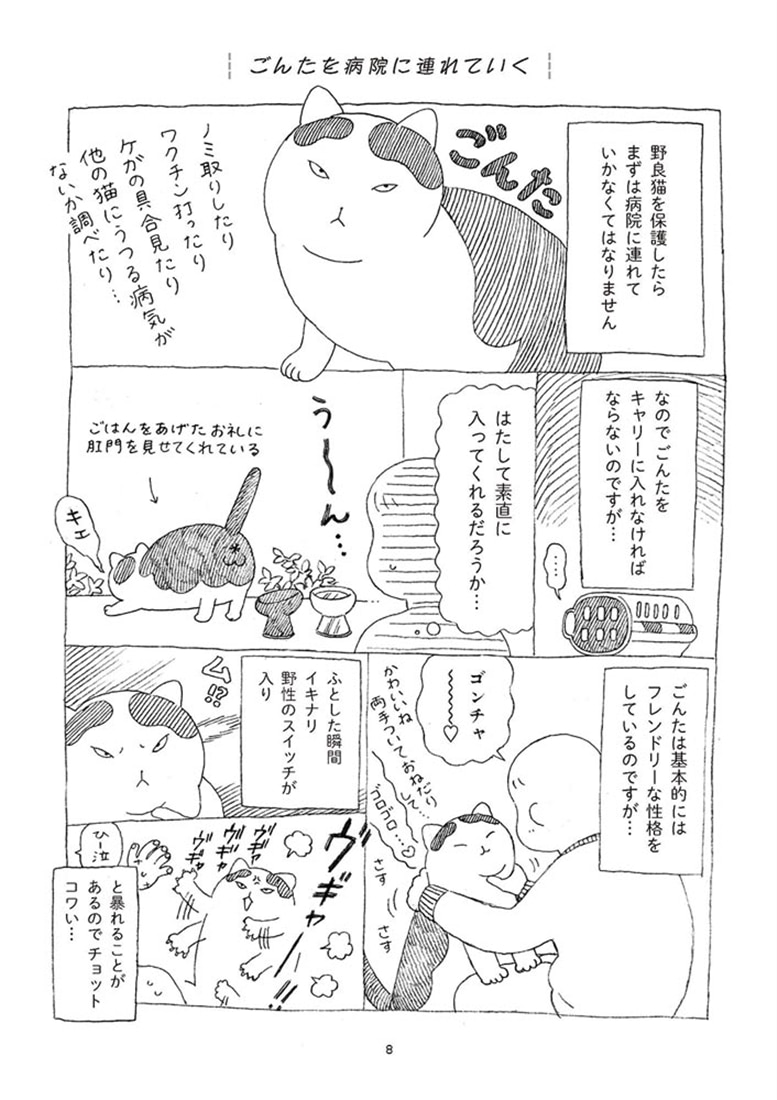 ごんたを病院に連れていく
野良猫を保護したら
まずは病院に連れて
いかなくてはなりません
ごんた
ノミ取りしたり
ワクチン打ったり
ケガの具合見たり
他の猫にうつる病気が
ないか調べたり…
なのでごんたを
キャリーに入れなければ
ならないのですが…
……
はたして素直に
入ってくれるだろうか…
う〜〜ん…
ごはんをあげたお礼に
肛門を見せてくれている
キェ
ごんたは基本的には
フレンドリーな性格を
しているのですが…
ゴンチャ
〜〜〜♡
かわいいね
両手ついておねだり
して…
ゴロゴロ…♡
さす
さす
ふとした瞬間
イキナリ
野性のスイッチが
入り
ム!?
ヴギャーーー!!
ヴギャ
ヴギャ
ヴギャ
ひー泣
と暴れることが
あるのでチョット
コワい…
8